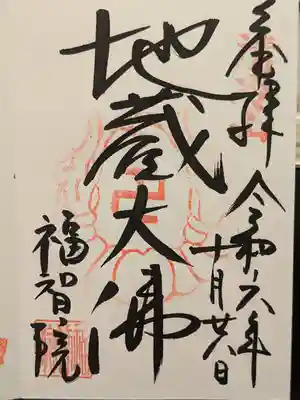 奉拝
令和六年
十月廿八日
地蔵大佛
福智院